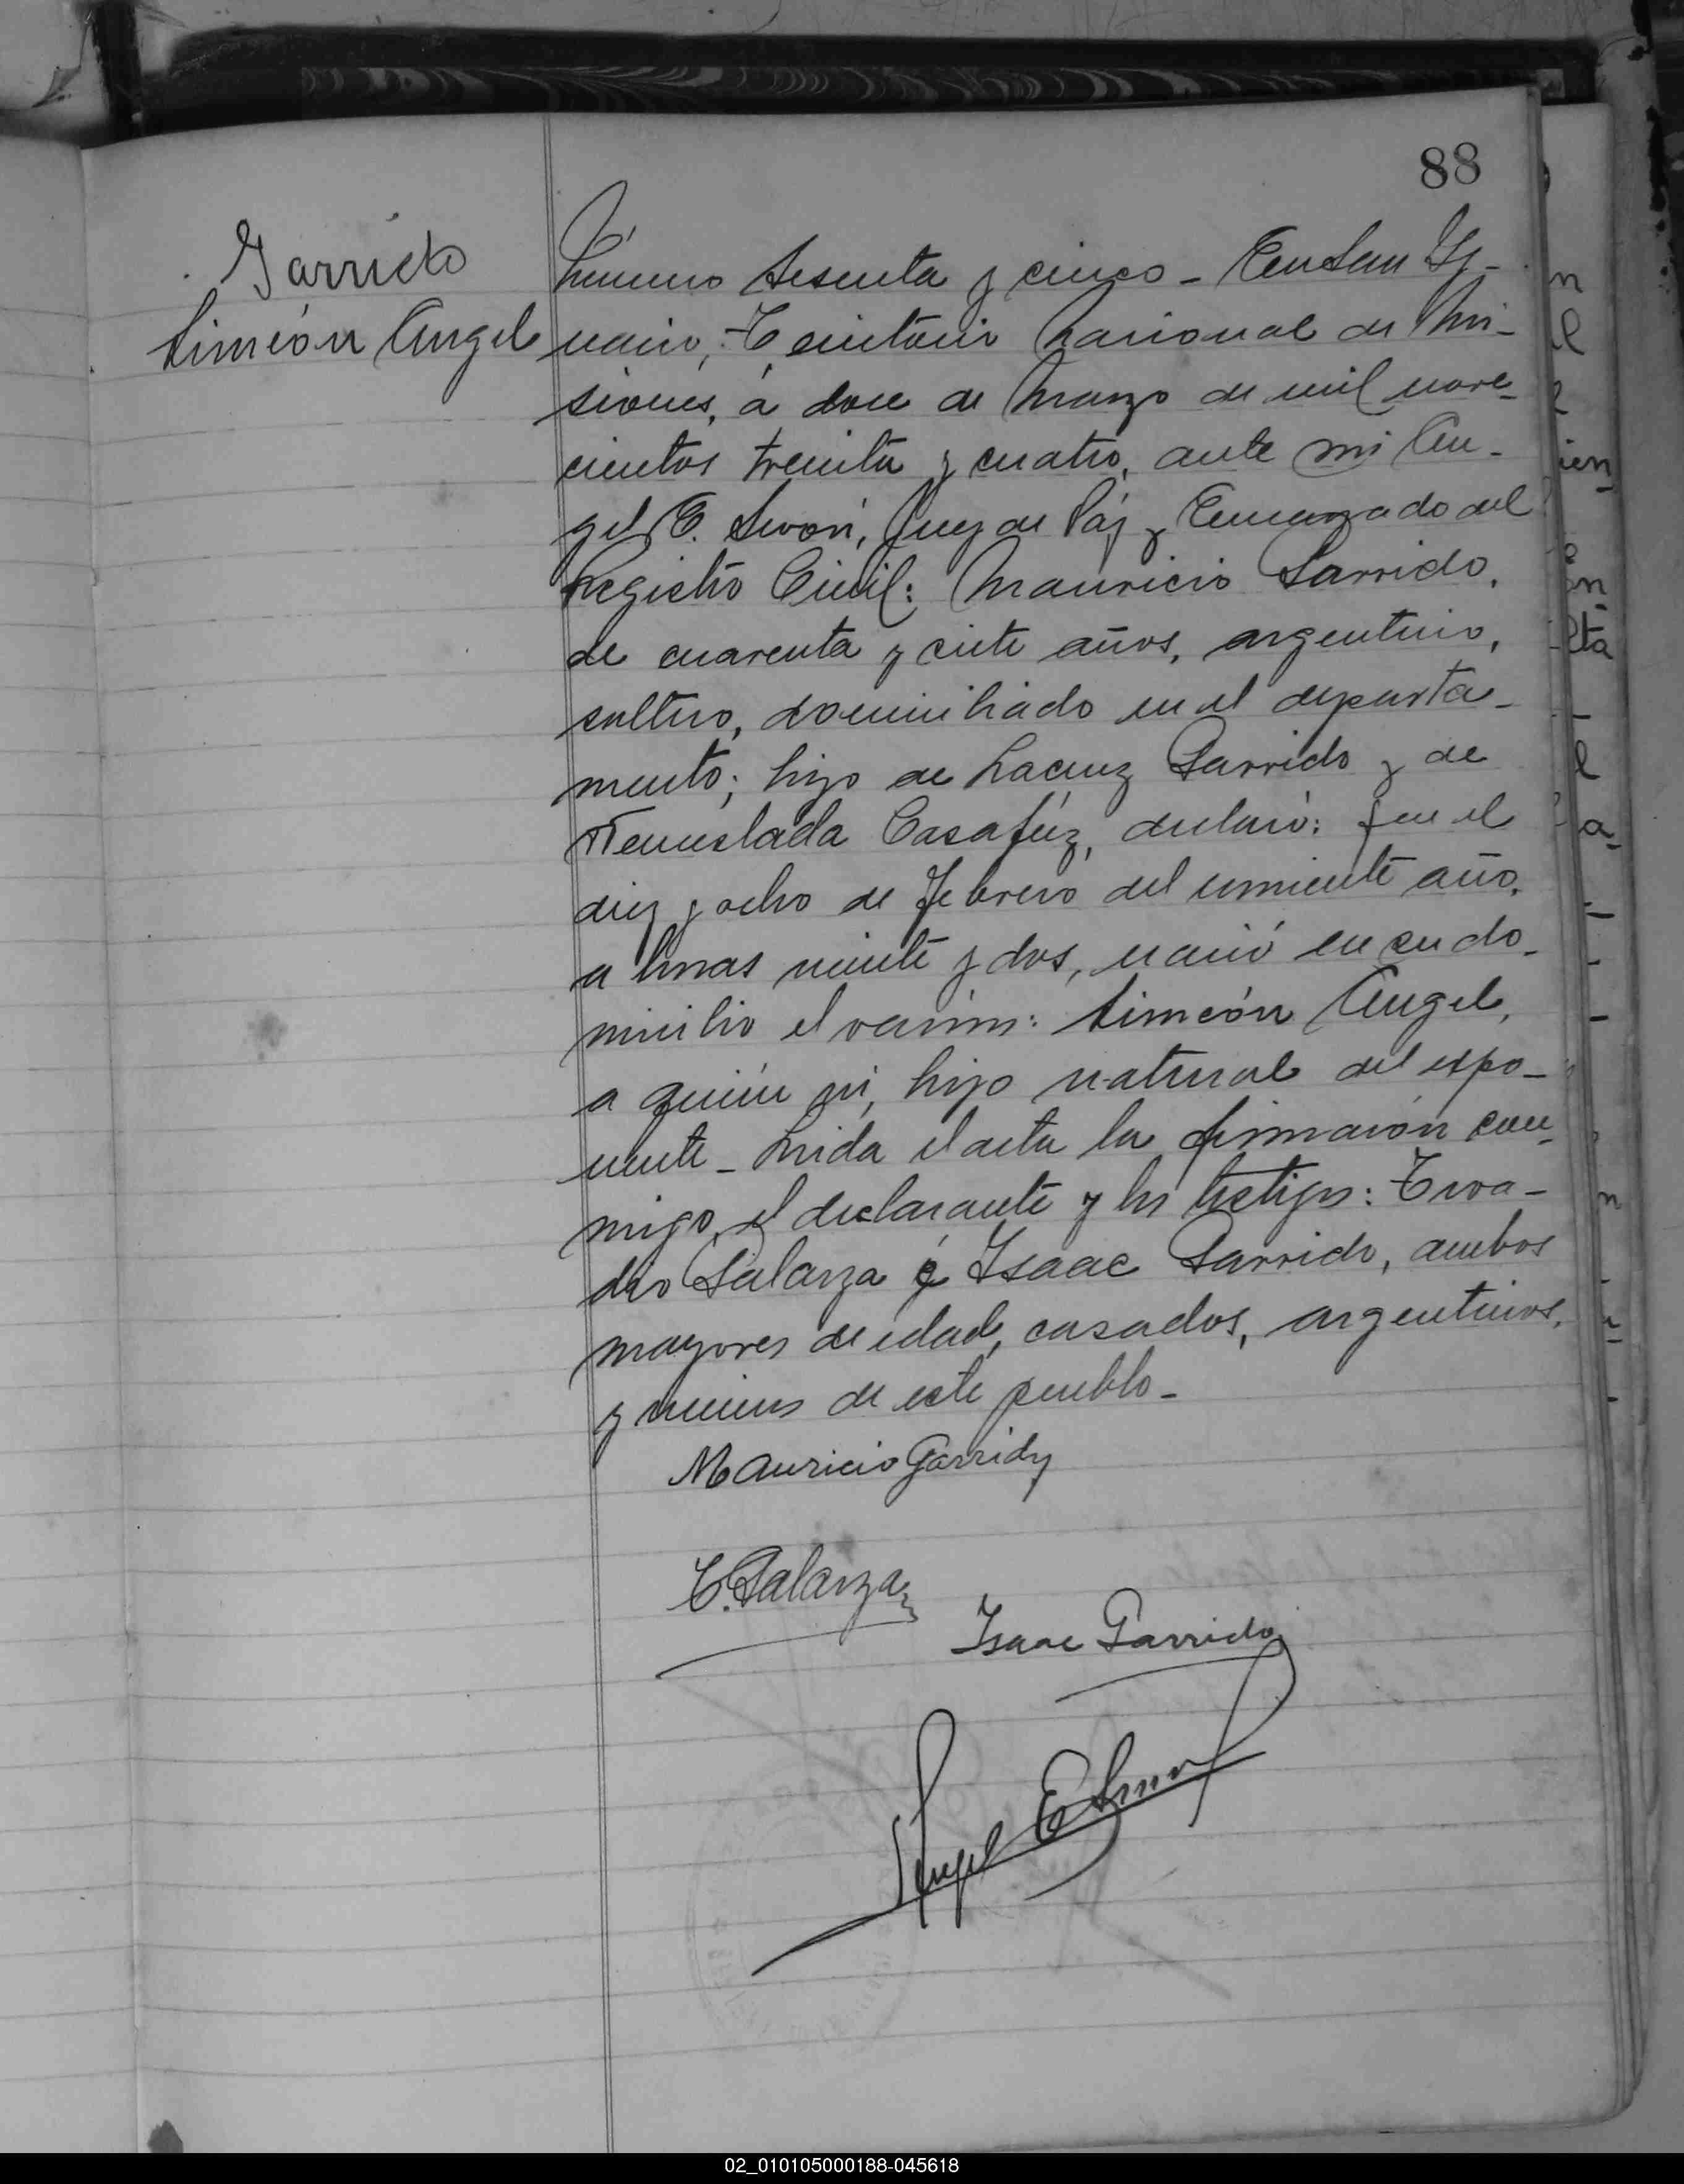 88
Garrido
Simeón Angel
Número sesenta y cinco - En San Ig-
nacio, Territorio Nacional de Mi-
siones, á doce de Marzo de mil nove-
cientos treinta y cuatro, ante mi An-
gel E. Juez de Páz y Encargado del
Registro Civil: Mauricio Garrido,
de cuarenta y siete años, argentino,
soltero, domiciliado en el departa-
mento; hijo de Garrido y de
Casafúz, declaró: que el
diez y ocho de Febrero del corriente año,
a horas veinte y dos, nació en su do-
micilio el varón: Simeón Angel,
a quién ví, hijo natural del expo-
nente - Leida el acta la firmaron con-
migo, el declarante y los testigos: Eva-
dro Galarza é Isaac Garrido, ambos
mayores de edad, casados, argentinos,
y vecinos de este pueblo -
Mauricio Garrido
E. Galarza
Isaac Garrido
Angel E
02_010105000188-045618